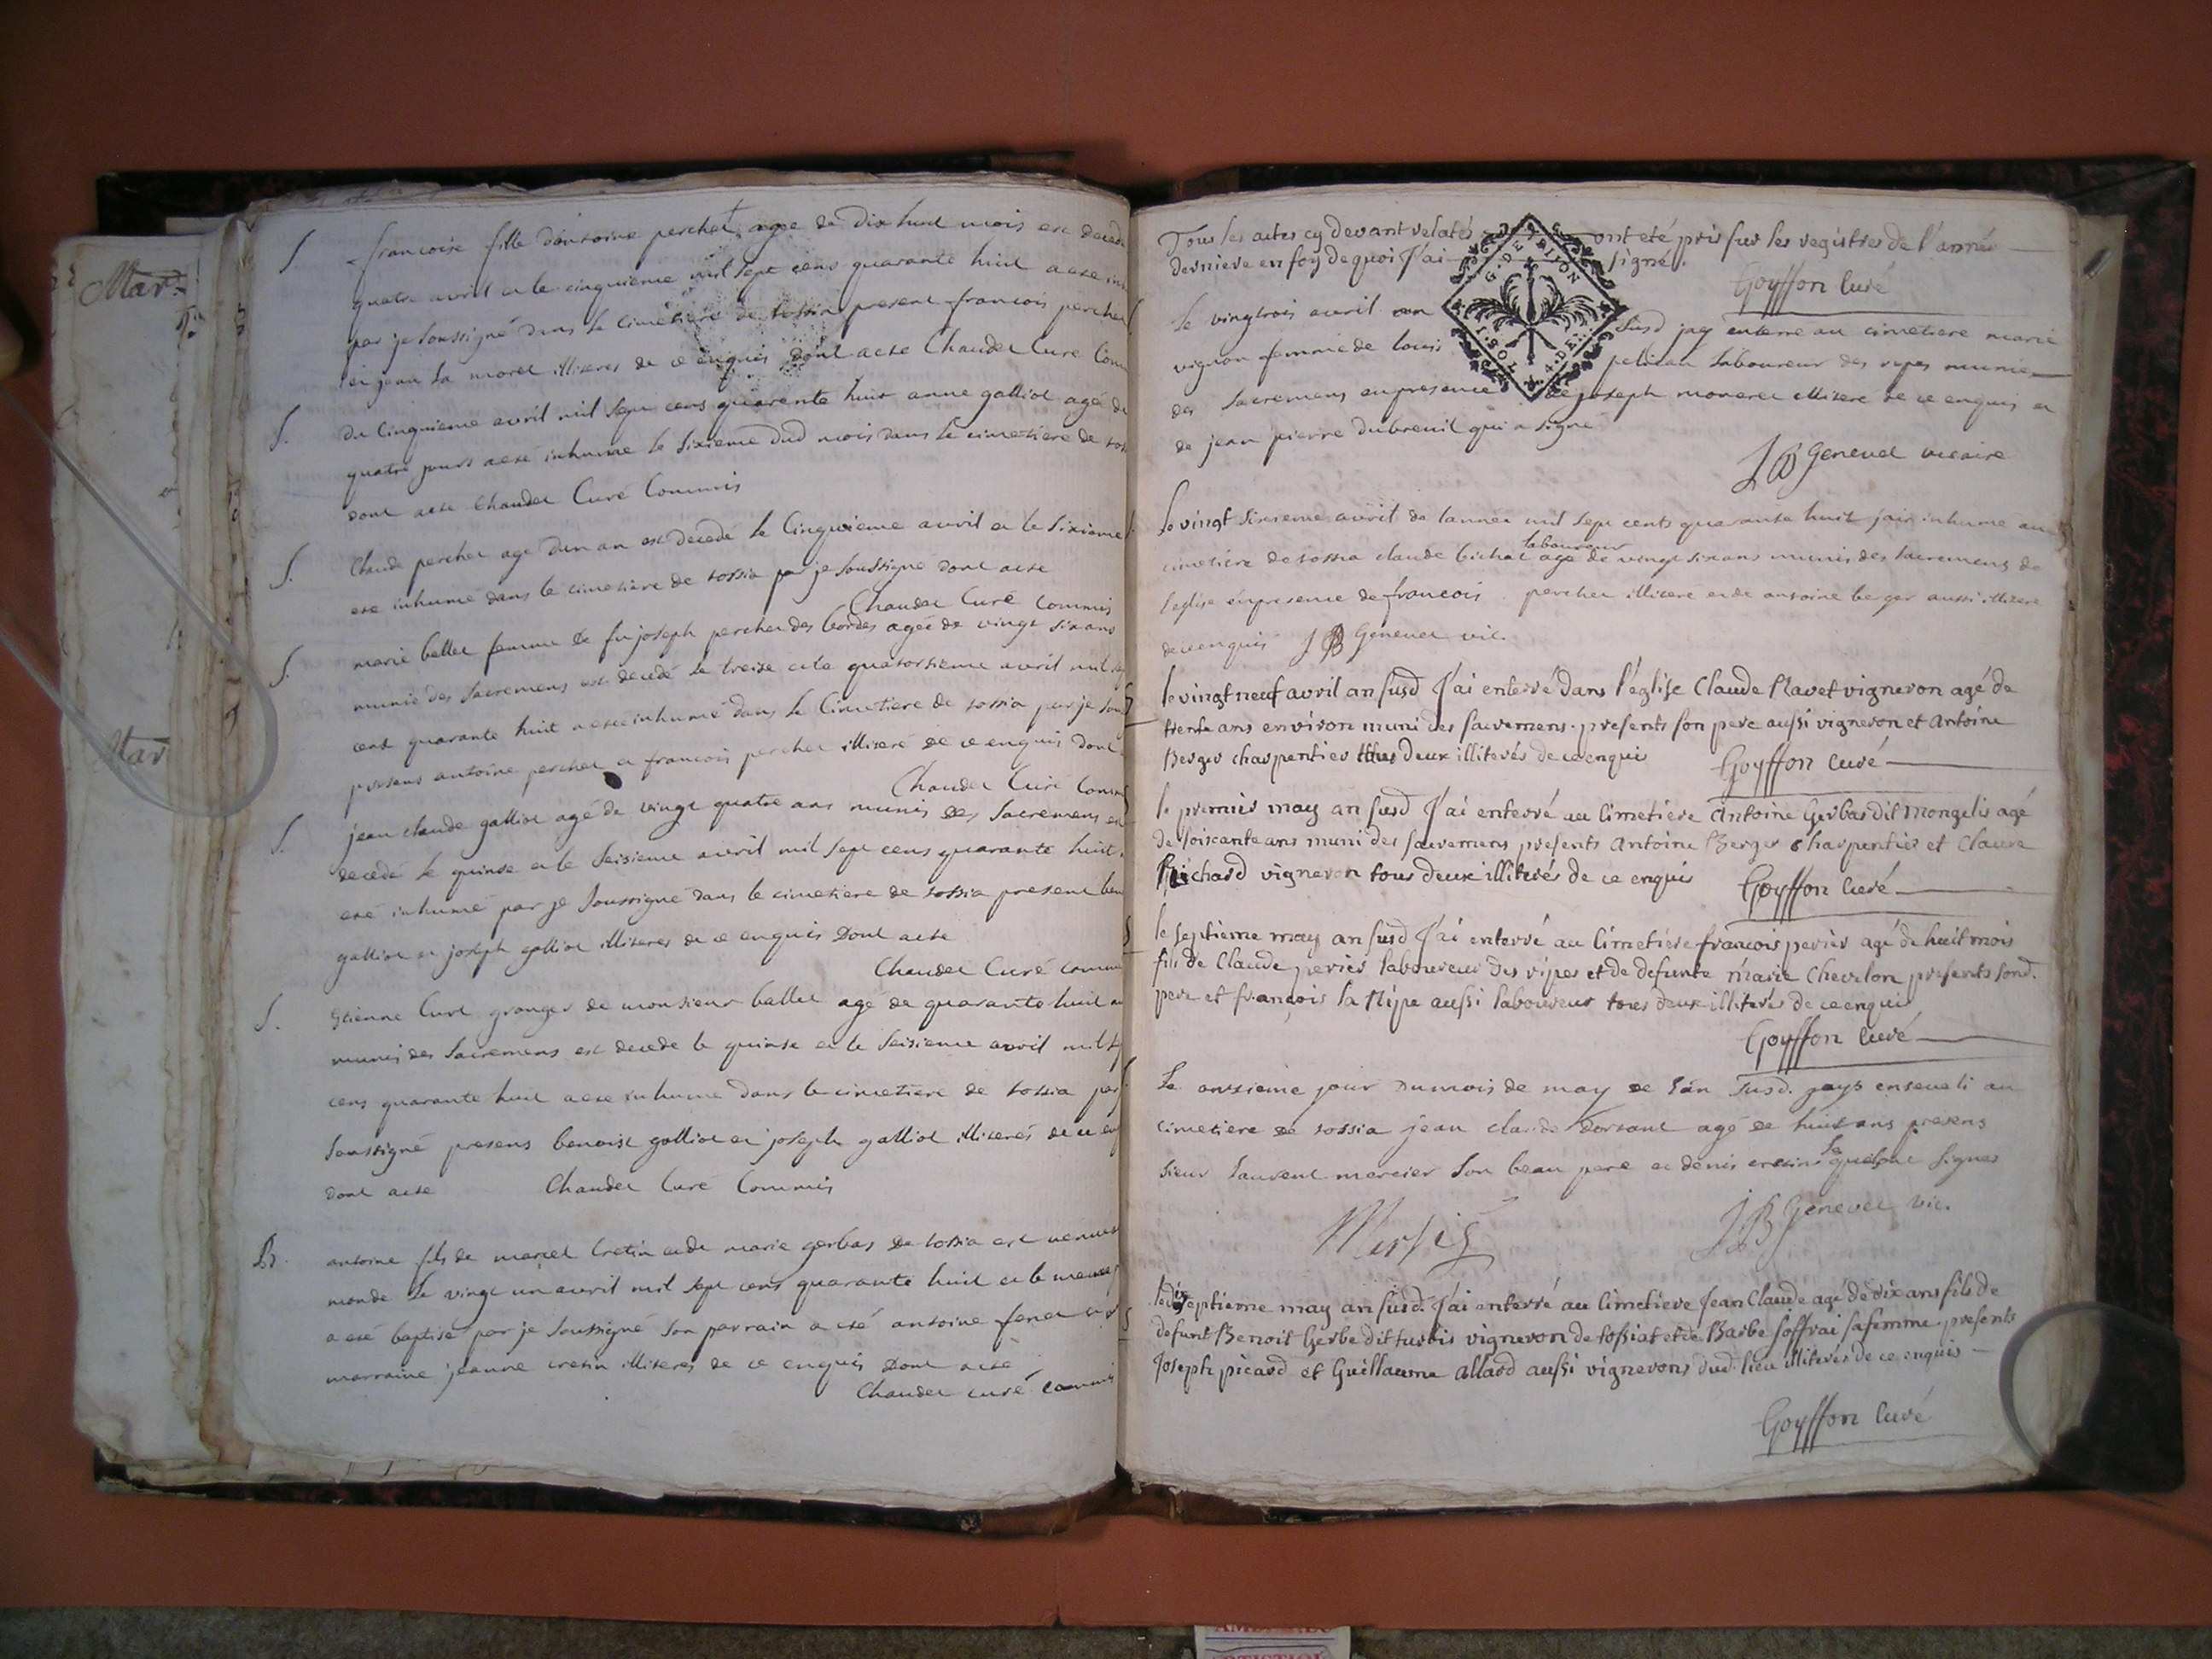 Mar.
Mar
S. francoise fille dantoine perchet agée de dix huit mois est decede
quatre avril et le cinquieme mil sept cens quarante huit a ete in
par je soussigné dans le cimetiere de tossia present francois perchet
et jean la morel illiteres de ce enquis dont acte Chaudet Curé Com
S. Du Cinquieme avril mil sept cens quarente huit anne galliot agé de
quatre jours a eté inhumé le sixieme dud mois dans le cimetiere de tos
dont acte Chaudet Curé Commis
S. Claude perchet agé dun an est decedé le Cinquieme avril et le sixieme
eté inhumé dans le cimetiere de tossia par je soussigné dont acte
Chaudet Curé Commis
S. marie ballet femme de fu joseph perchet des bordes agée de vingt six ans
munie des sacremens est decedé le treise et le quatorsieme avril mil sep
cent quarante huit a eté inhumé dans le Cimetiere de tossia par je sou
presens antoine perchet et francois perchet illiteré de ce enquis dont
Chaudet Curé Comm
S. jean claude galliot agé de vingt quatre ans munis des Sacremens est
decedé le quinse et le seisieme avril mil sept cens quarante huit
eté inhumé par je soussigné dans le cimetiere de tossia present ben
galliot et joseph galliot illiteres de ce enquis Dont acte
Chaudet Curé comm
S. Etienne Curt granger de monsieur ballet agé de quarante huit an
munis des Sacremens est decede le quinse et le seisieme avril mil s
cens quarante huit a ete inhumé dans le cimetiere de tossia par
soussigné presens benoist galliot et joseph galliot illiterés de ce en
dont acte Chaudet Curé Commis
B. antoine fils de marcel Cretin et de marie gerbas de tossia est venu
monde le vingt un avril mil sept cens quarante huit et le meme
a eté baptisé par je soussigné son parrain a eté antoine
marraine jeanne cretin illiteres de ce enquis Dont acte
Chaudet curé commi
Tous les actes cy devant relatés ont eté pris sur les registres de l'année
derniere en foy de quoi J'ai signé.
G. DE DIION
Goyffon Curé
Le vingtrois avril an susd jay enterré au cimetiere marie
vignon femme de louis pelisan laboureur des ripes munie
des Sacremens en presence de joseph moneret illiteré de ce enquis et
de jean pierre dubreuil qui a signé
JB Genevet vicaire
Le vingt sixieme avril de lannée mil sept cents quarante huit jaÿ inhumé au
laboureur
cimetiere de tossia claude bichat agé de vingt six ans munis des sacremens de
leglise en presence de francois perchet illiteré et de antoine berger aussi illiteré
de ce enquis JB Genevet vic.
le vingt neuf avril an susd J'ai enterré dans l'église Claude Ravet vigneron agé de
trente ans environ muni des sacremens. presents son pere aussi vigneron et Antoine
Berger charpentier tous deux illiterés de ce enquis Goyffon Curé
le premier may an susd J'ai enterré au Cimetiere Antoine Gerbas dit Mongelis agé
de soixante ans muni des sacremens presents Antoine Berger charpentier et Claude
Richard vigneron tous deux illiterés de ce enquis Goyffon Curé
S le septieme may an susd J'ai enterré au Cimetiere francois perier agé de huit mois
fils de Claude perier laboureur des ripes et de defunte marie Chevelon presents sond.
pere et françois la Ripe aussi laboureur tous deux illiterés de ce enquis
Goyffon Curé
Le onzieme jour du mois de may de lan susd. jays enseveli au
cimetiere de tossia jean claude dorsant agé de huit ans presens
sieur Laurent mercier son beau pere et denis cretin lequel ont signes
JB Genevet vic.
le dixseptieme may an susd. J'ai enterré au Cimetiere Jean Claude agé de dix ans fils de
S defunt Benoit Gerbe dit turbis vigneron de tossiat et de Barbe soffrai sa femme. presents
Joseph picard et Guillaume Allard aussi vignerons dud. lieu illiterés de ce enquis
Goyffon Curé